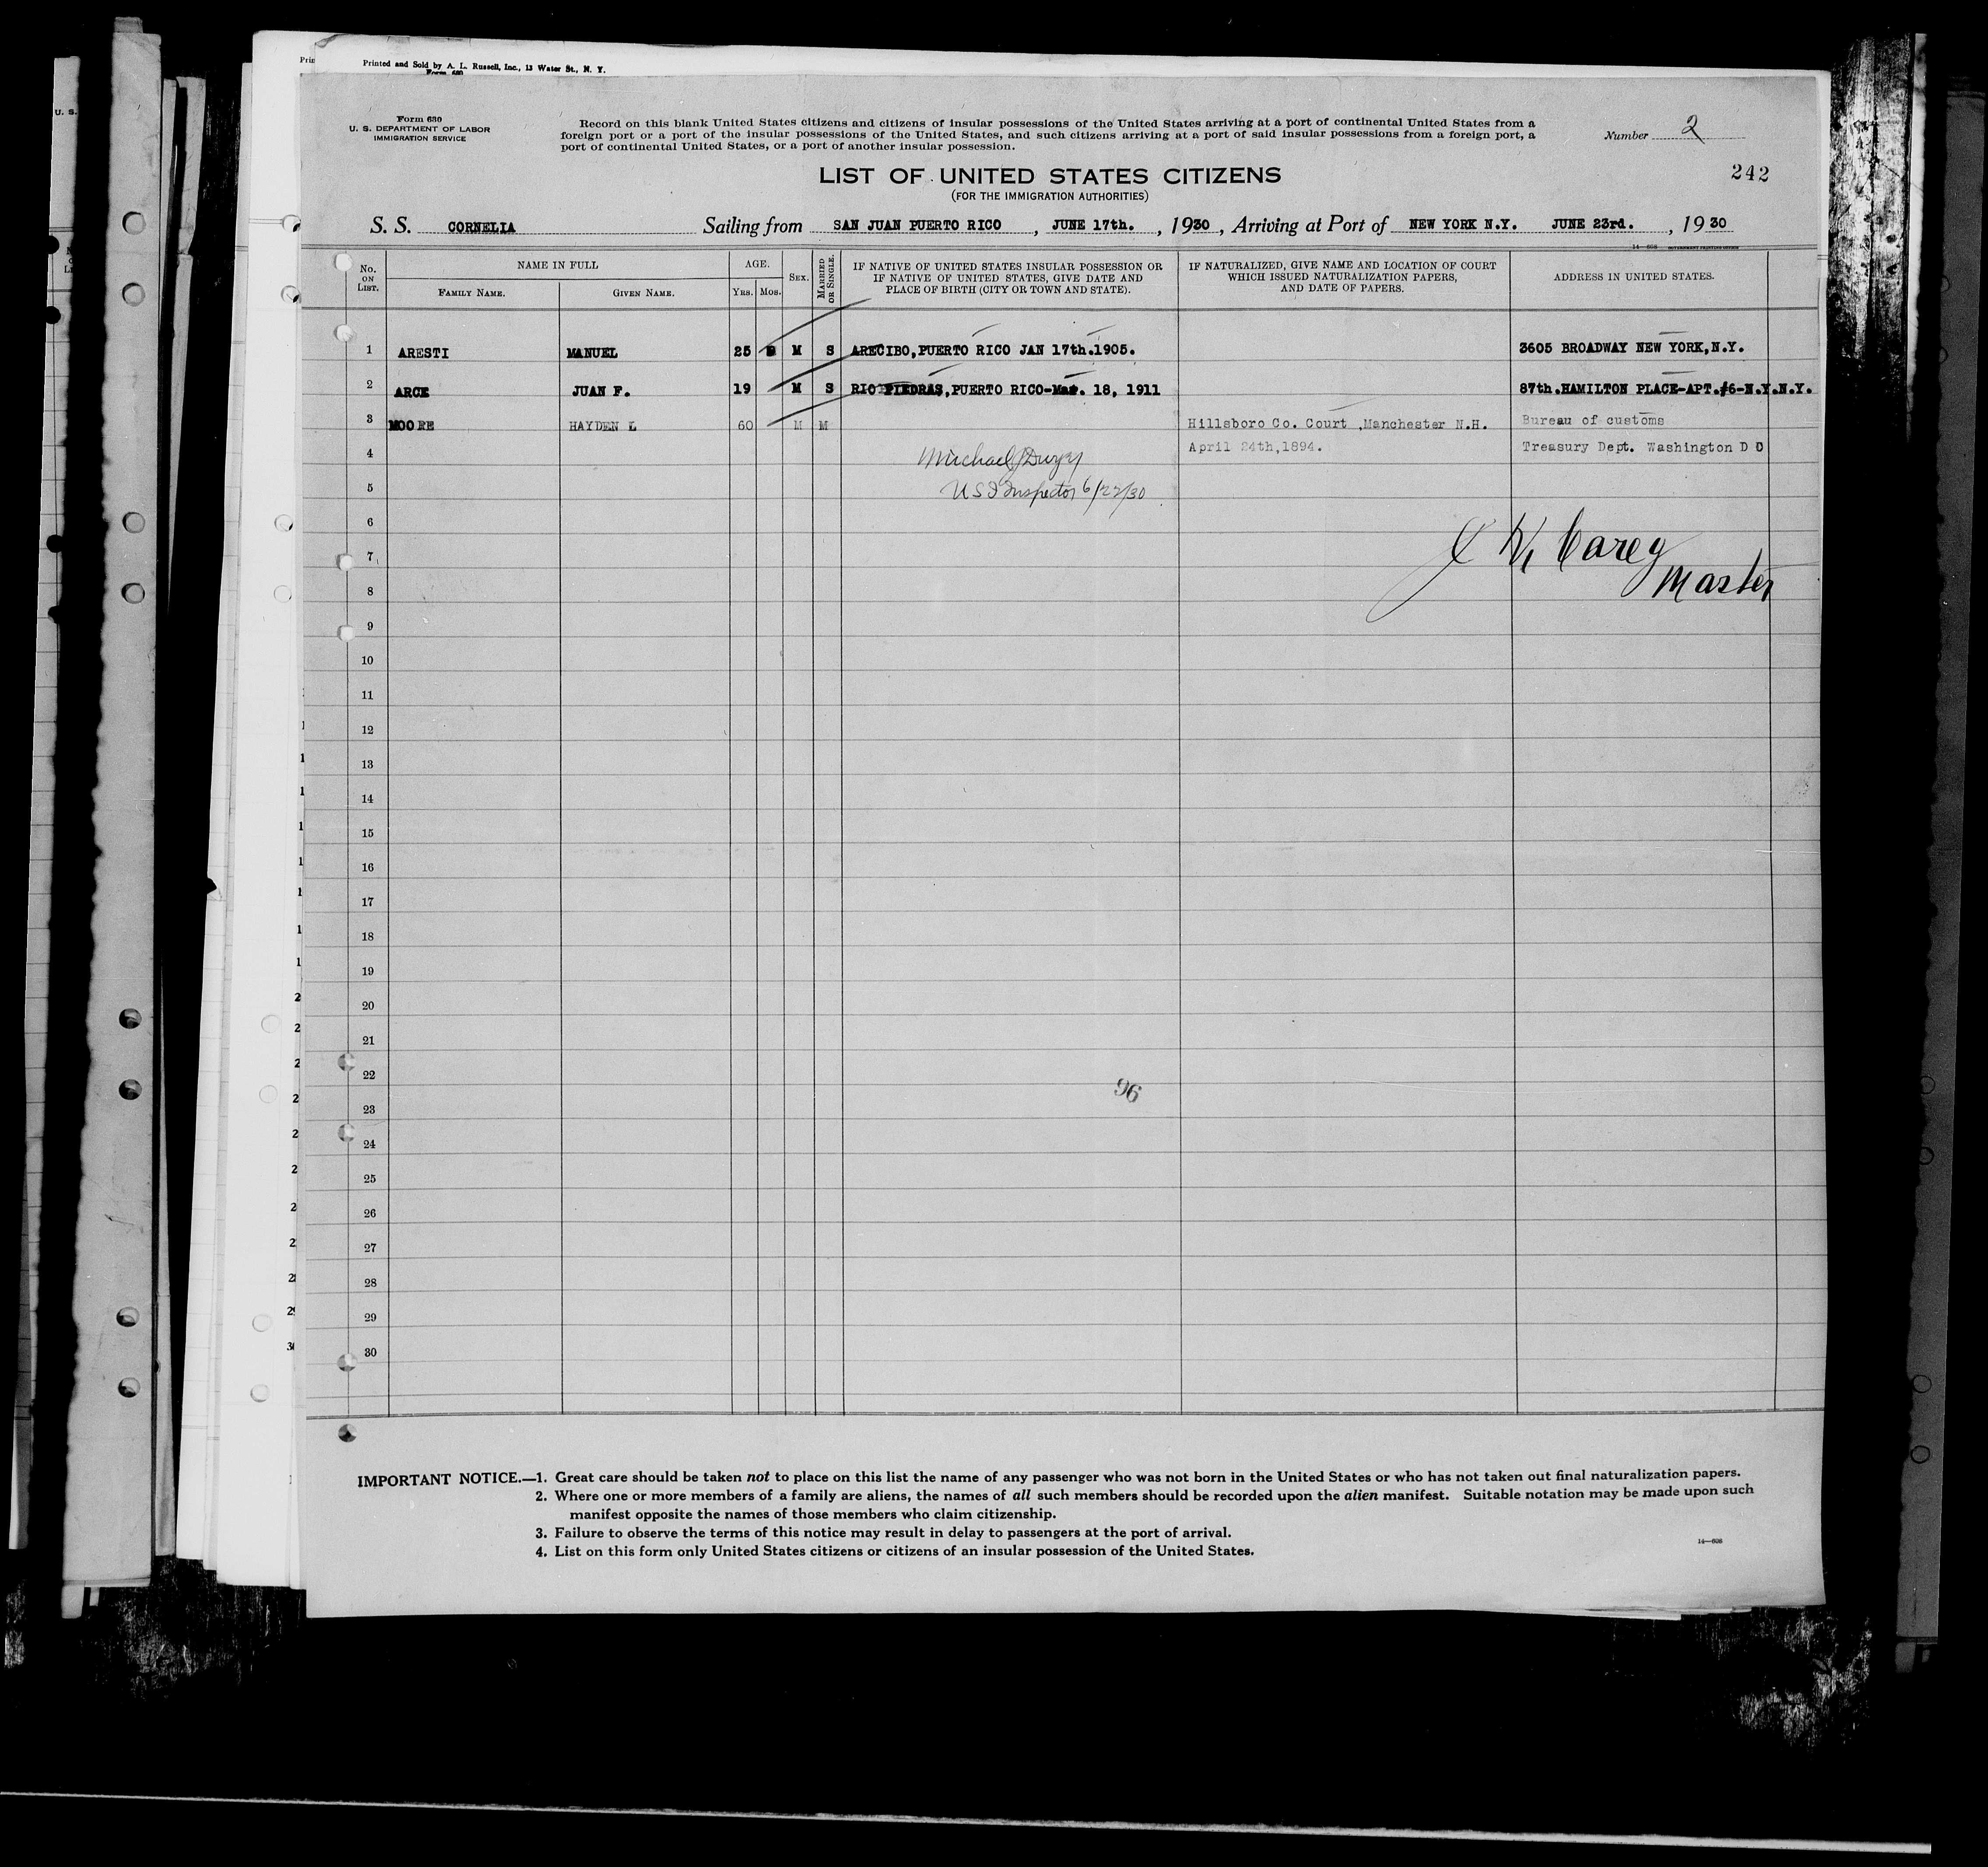 Printed and Sold by A. L. Russell, Inc., 13 Water St., N. Y.
Form 630
U. S. DEPARTMENT OF LABOR
IMMIGRATION SERVICE
Record on this blank United States citizens and citizens of insular possessions of the United States arriving at a port of continental United States from a
foreign port or a port of the insular possessions of the United States, and such citizens arriving at a port of said insular possessions from a foreign port, a
port of continental United States, or a port of another insular possession.
Number 2
242
LIST OF UNITED STATES CITIZENS
(FOR THE IMMIGRATION AUTHORITIES)
S. S. CORNELIA Sailing from SAN JUAN PUERTO RICO, JUNE 17th., 1930, Arriving at Port of NEW YORK N.Y. JUNE 23rd., 1930
No. ON LIST. NAME IN FULL FAMILY NAME. GIVEN NAME. AGE. YRS. MOS. SEX. MARRIED OR SINGLE. IF NATIVE OF UNITED STATES INSULAR POSSESSION OR IF NATIVE OF UNITED STATES, GIVE DATE AND PLACE OF BIRTH (CITY OR TOWN AND STATE). IF NATURALIZED, GIVE NAME AND LOCATION OF COURT WHICH ISSUED NATURALIZATION PAPERS, AND DATE OF PAPERS. ADDRESS IN UNITED STATES.
1 ARESTI MANUEL 25 M S ARECIBO,PUERTO RICO JAN 17th.1905. 3605 BROADWAY NEW YORK,N.Y.
2 ARCE JUAN F. 19 M S RIO PIEDRAS,PUERTO RICO-Mar. 18, 1911 87th.HAMILTON PLACE-APT.#6-N.Y.N.Y.
3 MOORE HAYDEN L 60 M M Hillsboro Co. Court ,Manchester N.H. Bureau of customs
4 April 24th,1894. Treasury Dept. Washington D C
Michael
5 U S I Inspector 6/22/30
6
7 Carey
8 Master
9
10
11
12
13
14
15
16
17
18
19
20
21
22
96
23
24
25
26
27
28
29
30
IMPORTANT NOTICE.—1. Great care should be taken not to place on this list the name of any passenger who was not born in the United States or who has not taken out final naturalization papers.
2. Where one or more members of a family are aliens, the names of all such members should be recorded upon the alien manifest. Suitable notation may be made upon such
manifest opposite the names of those members who claim citizenship.
3. Failure to observe the terms of this notice may result in delay to passengers at the port of arrival.
4. List on this form only United States citizens or citizens of an insular possession of the United States.
14—608